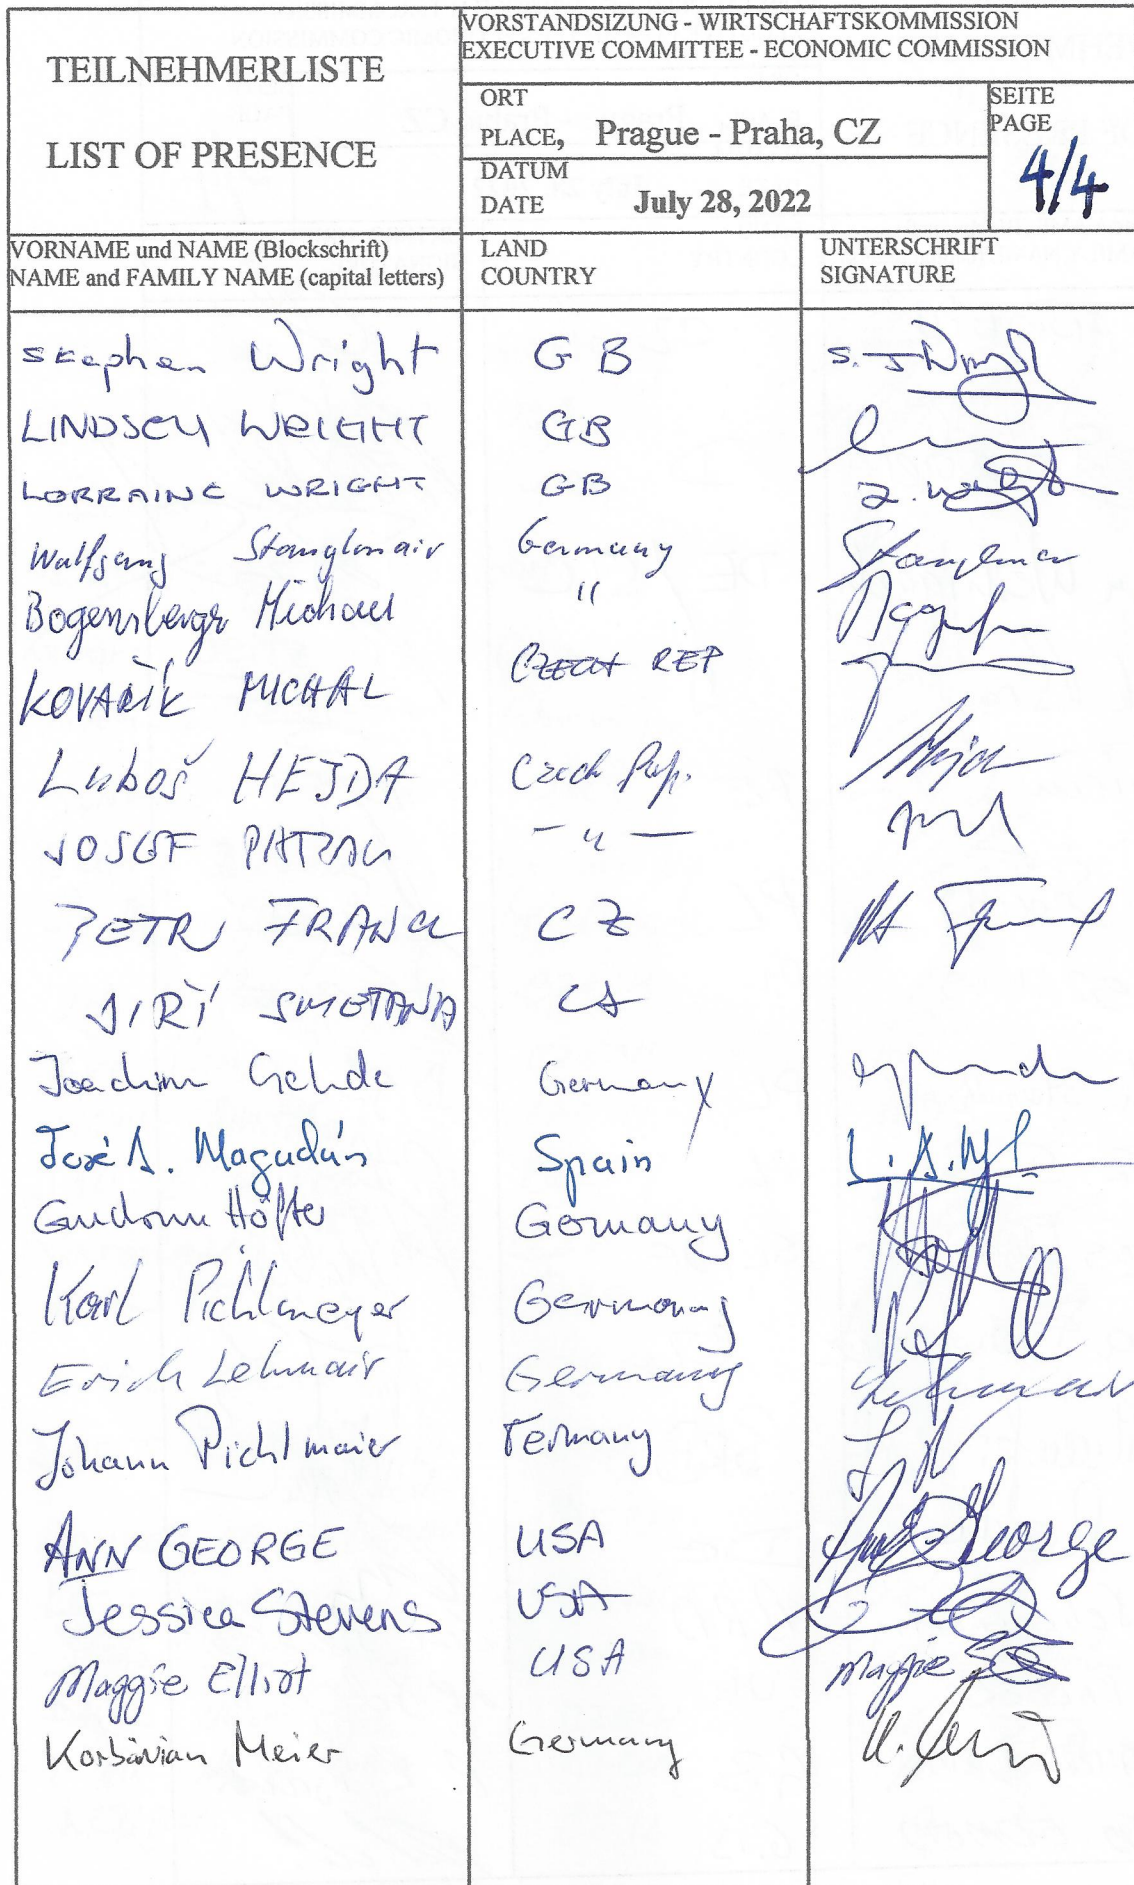 TEILNEHMERLISTE
LIST OF PRESENCE
VORSTANDSIZUNG - WIRTSCHAFTSKOMMISSION
EXECUTIVE COMMITTEE - ECONOMIC COMMISSION
ORT
PLACE, Prague - Praha, CZ
DATUM
DATE July 28, 2022
SEITE
PAGE
4/4
VORNAME und NAME (Blockschrift)
NAME and FAMILY NAME (capital letters)
LAND
COUNTRY
UNTERSCHRIFT
SIGNATURE
Stephen Wright GB
LINDSEY WRIGHT GB
LORRAINE WRIGHT GB
Wolfgang Stanglmair Germany
Bogensberger Michael "
KOVAŘÍK MICHAL CZECH REP
Luboš HEJDA Czech Rep.
JOSEF — " —
PETR FRANCL CZ
JIŘÍ SMETANA CZ
Joachim Gehde Germany
José A. Magadán Spain
Höfter Germany
Karl Pichlmeyer Germany
Erich Lehmair Germany Lehmair
Johann Pichlmaier Germany
ANN GEORGE USA Ann George
Jessica Stevens USA
Maggie Elliot USA Maggie
Korbinian Meier Germany